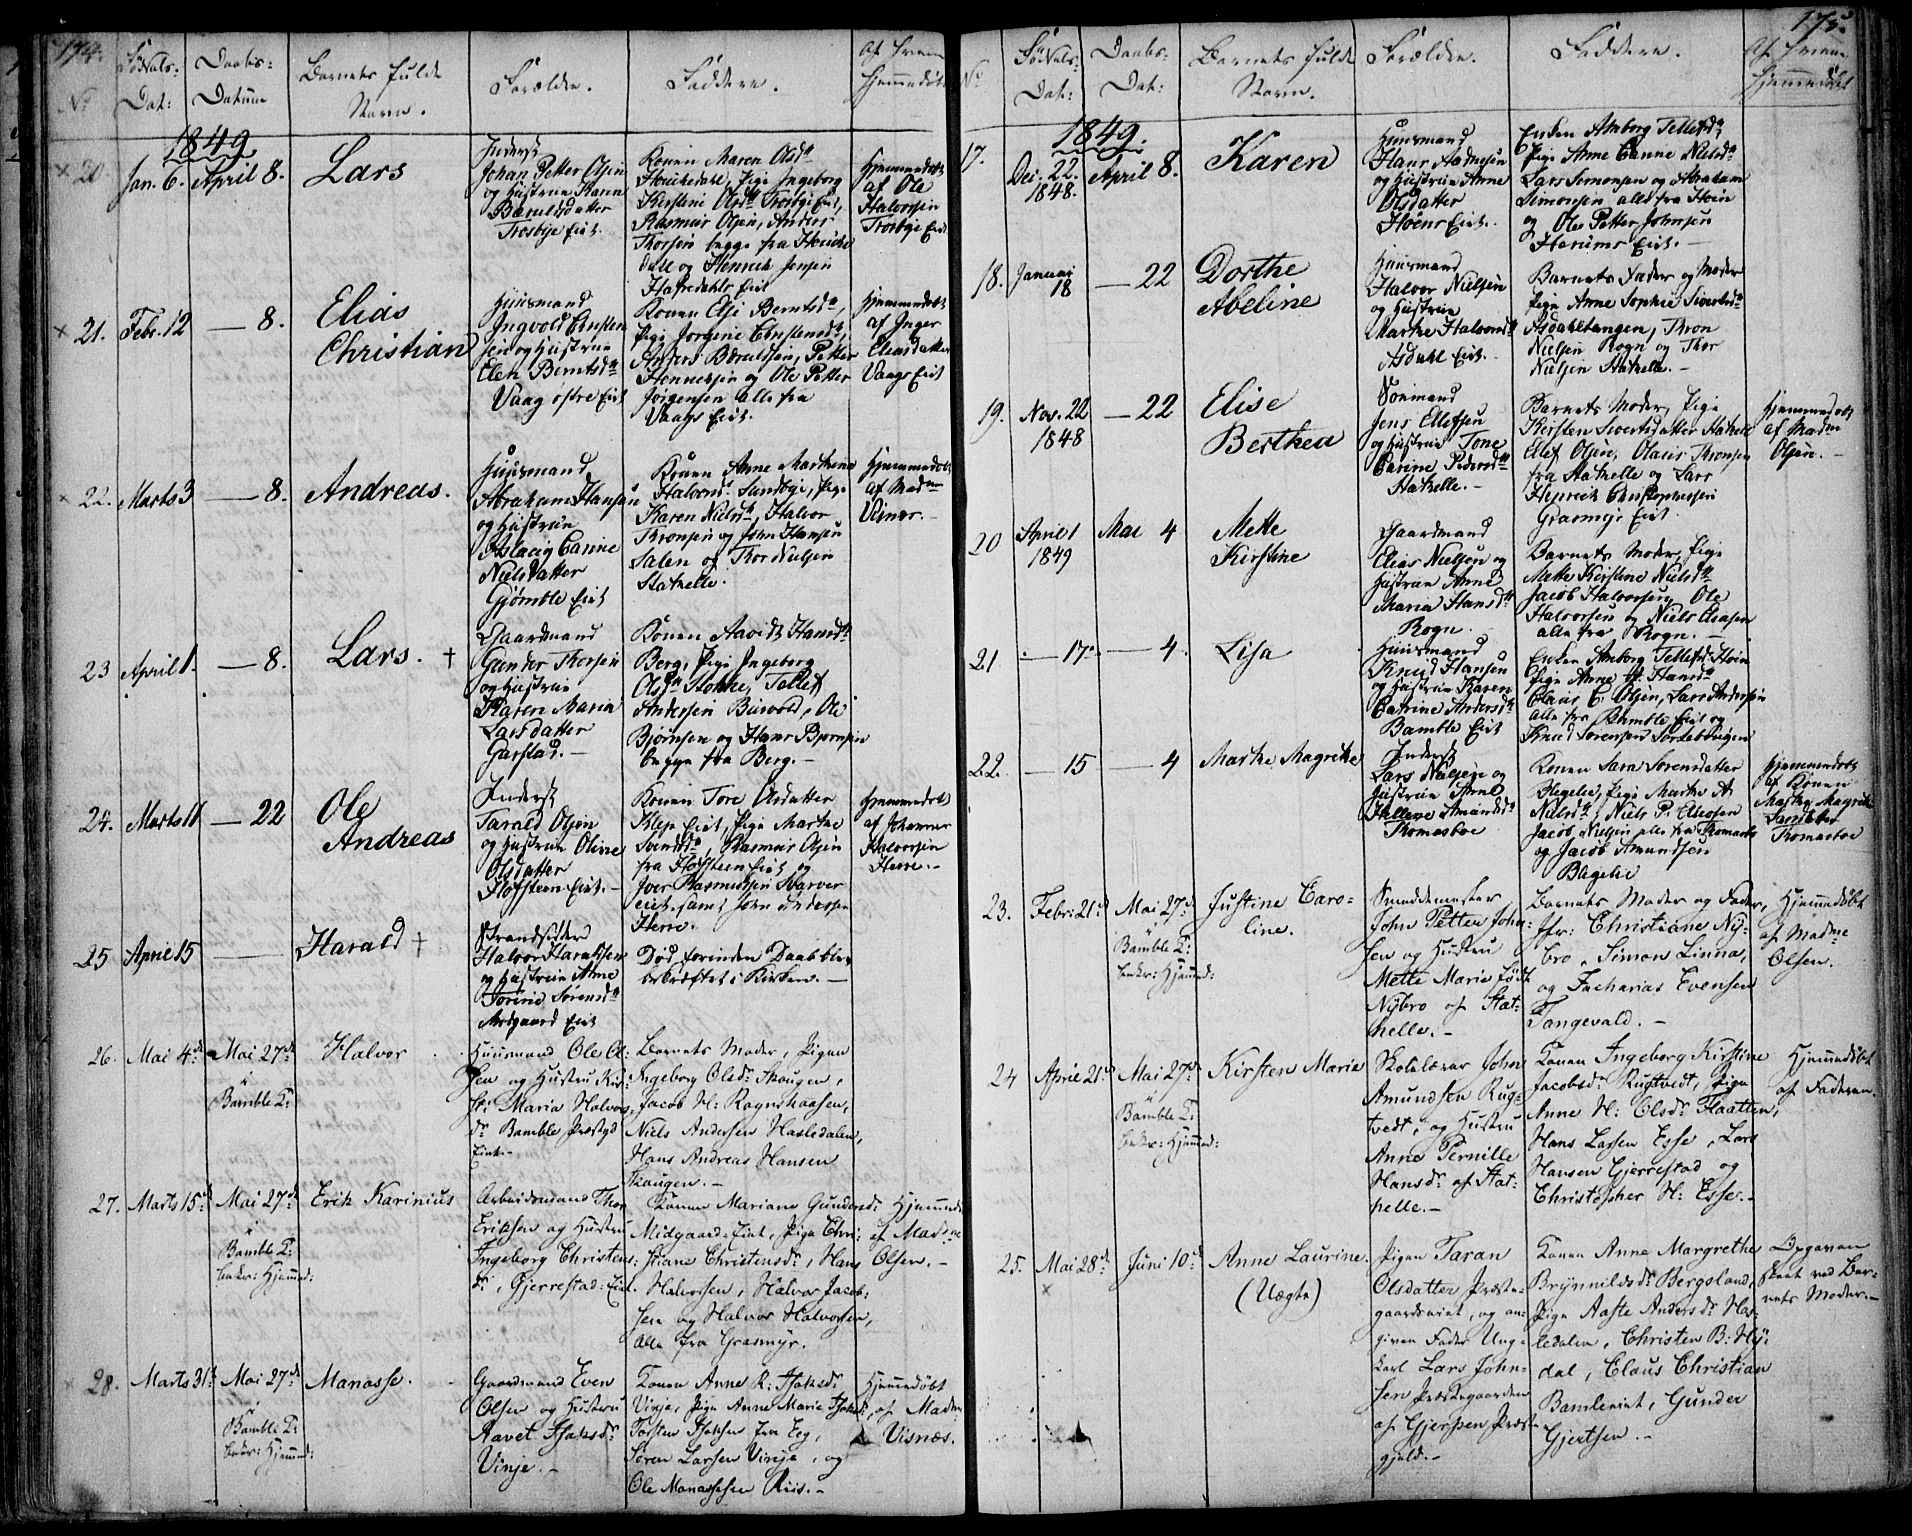 174.
No
Fødsels-
Dat:
Daabs-
Datum
Barnets fulde
Navn.
Forældre.
Faddere.
Af hvem
Hjemmedøbt
1849
20 Jan. 6. April 8. Lars
Inderst
Johan Petter Olsen
og Hustrue Karen
Baruldsdatter
Trosbye Eiet.
Konen Maren Olsdr
Pige Ingeborg
Kirstine Olsdr Trosbye Eiet,
Rasmus Olsen, Anders
Thorsen begge fra
og Henrich Jensen
Eiet
Hjemmedøbt
af Ole
Halvorsen
Trosbye Eiet
21. Febr. 12 — 8. Elias
Christian
Huusmand
Ingvold
og Hustrue
Elen Berntsdr
Vaag østre Eiet
Konen Else Berntsdr,
Pige Jørgine
Anders Baruldsen, Petter
Henrichsen og Ole Petter
Jørgensen alle fra
Vaags Eiet.
Hjemmedøbt
af Inger
Eliasdatter
Vaags Eiet
22. Marts 3 — 8. Andreas.
Huusmand
Abraham Hansen
og Hustrue
Aslaug Carine
Nielsdatter
Gjømble Eiet
Konen Anne Marthena
Halvorsdr Sundbye, Pige
Karen Nielsdr, Halvor
Thronsen og John Hansen
Salen og Thor Nielsen
Stathelle.
Hjemmedøbt
af Madme
Visnes.
23 April 1. — 8. Lars. †
Gaardmand
Gunder Thorsen
og Hustrue
Karen Maria
Larsdatter
Garstad.
Konen Hansdr
Berg, Pige Ingeborg
Olsdr Stokke, Tellef
Andersen Ole
Bjørnsen og Hans Bjørnsen
begge fra Berg.
24. Marts 11 — 22 Ole
Andreas
Inderst
Tarald Olsen
og Hustrue Oline
Olsdatter
Hofsteen Eiet.
Konen Tore Olsdatter
Eiet, Pige Marthe
Svensdr, Rasmus Olsen
fra Hofsteen Eiet og
Iver Rasmussen
Eiet samt John Andersen
Herre.
Hjemmedøbt
af Johannes
Halvorsen
Herre.
25 April 15 — Harald †
Strandsidder
Halvor Haraldsen
og Hustrue Anne
Torine Sørensdr
Eiet
Død forinden Daab blev
bekræftet i Kirken.
26. Mai 4de Mai 27de Halvor
i
Bamble K:
Huusmand Ole Ol-
sen og Hustru Kir-
st: Maria Halvors
dr Bamble Præstegd
Eiet.
Barnets Moder, Pigen
Ingeborg Olsdr Skougen,
Jacob H: Rognshaasen,
Niels Andersen Hasledalen,
Hans Andreas Hansen
Skougen.
27. Marts 15de Mai 27de Erik Karinius
i
Bamble K:
bekr: Hjemmed:
Arbeidsmand Thor
Eriksen og Hustru
Ingeborg Christens-
dr, Gjerrestad: Eiet.
Konen Mariane Gundersdr
Midgaard-Eiet, Pige Chri-
stiane Christensdr, Hans
Halvorsen, Halvor Jacob-
sen og Halvor Halvorsen,
alle fra Grasmyr.
Hjemmed:
af Madme
Olsen.
28. Marts 31te Mai 27de Manasse.
i
Bamble K:
bekr: Hjemmed:
Gaardmand Even
Olsen og Hustru
Aavet Isaksdr
Vinje.
Konen Anne K: Isaksdr
Vinje, Pige Anne Marie Isaksdr,
Torsten Isaksen fra Eeg,
Søren Larsen Vinje, og
Ole Manassesen Riis.
Hjemmedøbt
af Madme
Visnæs.
175.
No
Fødsels-
Dat:
Daabs-
Dat:
Barnets fulde
Navn.
Forældre.
Faddere.
Af hvem
Hjemmedøbt
1849.
17. Dec. 22. April 8. Karen
1848.
Huusmand
Hans Aadnesen
og Hustrue Anne
Olsdatter
Høens Eiet.
Enken Amborg Tellefsdr,
Pige Anne Canne Nielsdr
Lars Simonsen og Abraham
Simonsen alle fra Høen
og Ole Petter Johnsen
Herums Eiet.
18. Januai
18 — 22 Dorthe
Abeline
Huusmand
Halvor Nielsen
og Hustrue
Marthe Halvorsdr
Asdahl Eiet.
Barnets Fader og Moder
Pige Anne Sophie Sivertsdr
Asdahltangen, Thron
Nielsen Rogn og Thor
Nielsen Stathelle.
19. Nov. 22 — 22 Elise
1848 Berthea
Jens Ellefsen
og Hustrue Tone
Carine Pedersdr
Stathelle.
Barnets Moder, Pige
Kirsten Sivertsdatter Stathelle
Ellef Olsen, Olaus Thronsen
fra Stathelle og Lars
Henrich Christophersen
Grasmyr Eiet.
Hjemmedøbt
af Madme
Olsen.
20 April 1 Mai 4 Mette
1849 Kirstine
Gaardmand
Elias Nielsen og
Hustrue Anne
Maria Hansdr
Rogn.
Barnets Moder, Pige
Mette Kirstine Nielsdr
Jacob Halvorsen, Ole
Halvorsen og Niels Eliasen
alle fra Rogn.
21 — 17. — 4. Lisa
Huusmand
Knud Hansen
og Hustrue Karen
Catrine Andersdr
Bamble Eiet
Enken Amborg Tellefsdr Høen
Pige Anne H. Hansdr
Claus C. Olsen, Lars Andersen
alle fra Bamble Eiet og
Knud Sørensen
22. — 15 — 4 Marthe Magrethe
Inderst
Lars Nielsen og
Hustrue Anne
Hellene Amundsdr
Thomasboe
Konen Sara Sørensdatter
Blegelie, Pige Marthe A
Nielsdr, Niels P. Eliesen
Jacob Nielsen alle fra Thomasbo
og Jacob Amundsen
Blegelie
Hjemmedøbt
af Konen
Marthe Magrethe
Thomasboe
23. Febr: 21de Mai 27de Justine Caro-
i line.
Bamble K:
bekr: Hjemmed:
Smeddemester
John Petter John-
sen og Hustru
Mette Marie født
Nybro af Stat-
helle.
Barnets Moder og Fader,
Jfr: Christiane Ny-
bro, Simon Linna,
og Zacharias Evensen
Tangevald.
Hjemmedøbt
af Madme
Olsen.
24 April 21de Mai 27de Kirsten Marie
i
Bamble K:
bekr: Hjemmed:
Skolelærer John
Amundsen Rug-
tvedt, og Hustru
Anne Pernille
Hansdr af Stat-
helle.
Konen Ingeborg Kirstine
Jacobsdr Rugtvedt, Pige
Anne H: Olsdr Flaatten,
Hans Larsen Esse, Lars
Hansen Gjerrestad og
Christopher H: Esse.
Hjemmedøbt
af Faderen.
25. Mai 28de Juni 10de Anne Laurine.
(Uægte)
Pigen Taran
Olsdatter Præste-
gaardseiet, og an-
given Fader Ung-
karl Lars John-
sen Præstegaarden
af Gjerpen Præste-
gjeld.
Konen Anne Margrethe
Brynnildsdr Bergsland,
Pige Aaste Andersdr Has-
ledalen, Christen B: Hy-
dal, Claus Christian
Bambleeiet, Gunder
Gjertsen.
Opgaven
skeet ved Bar-
nets Moder.